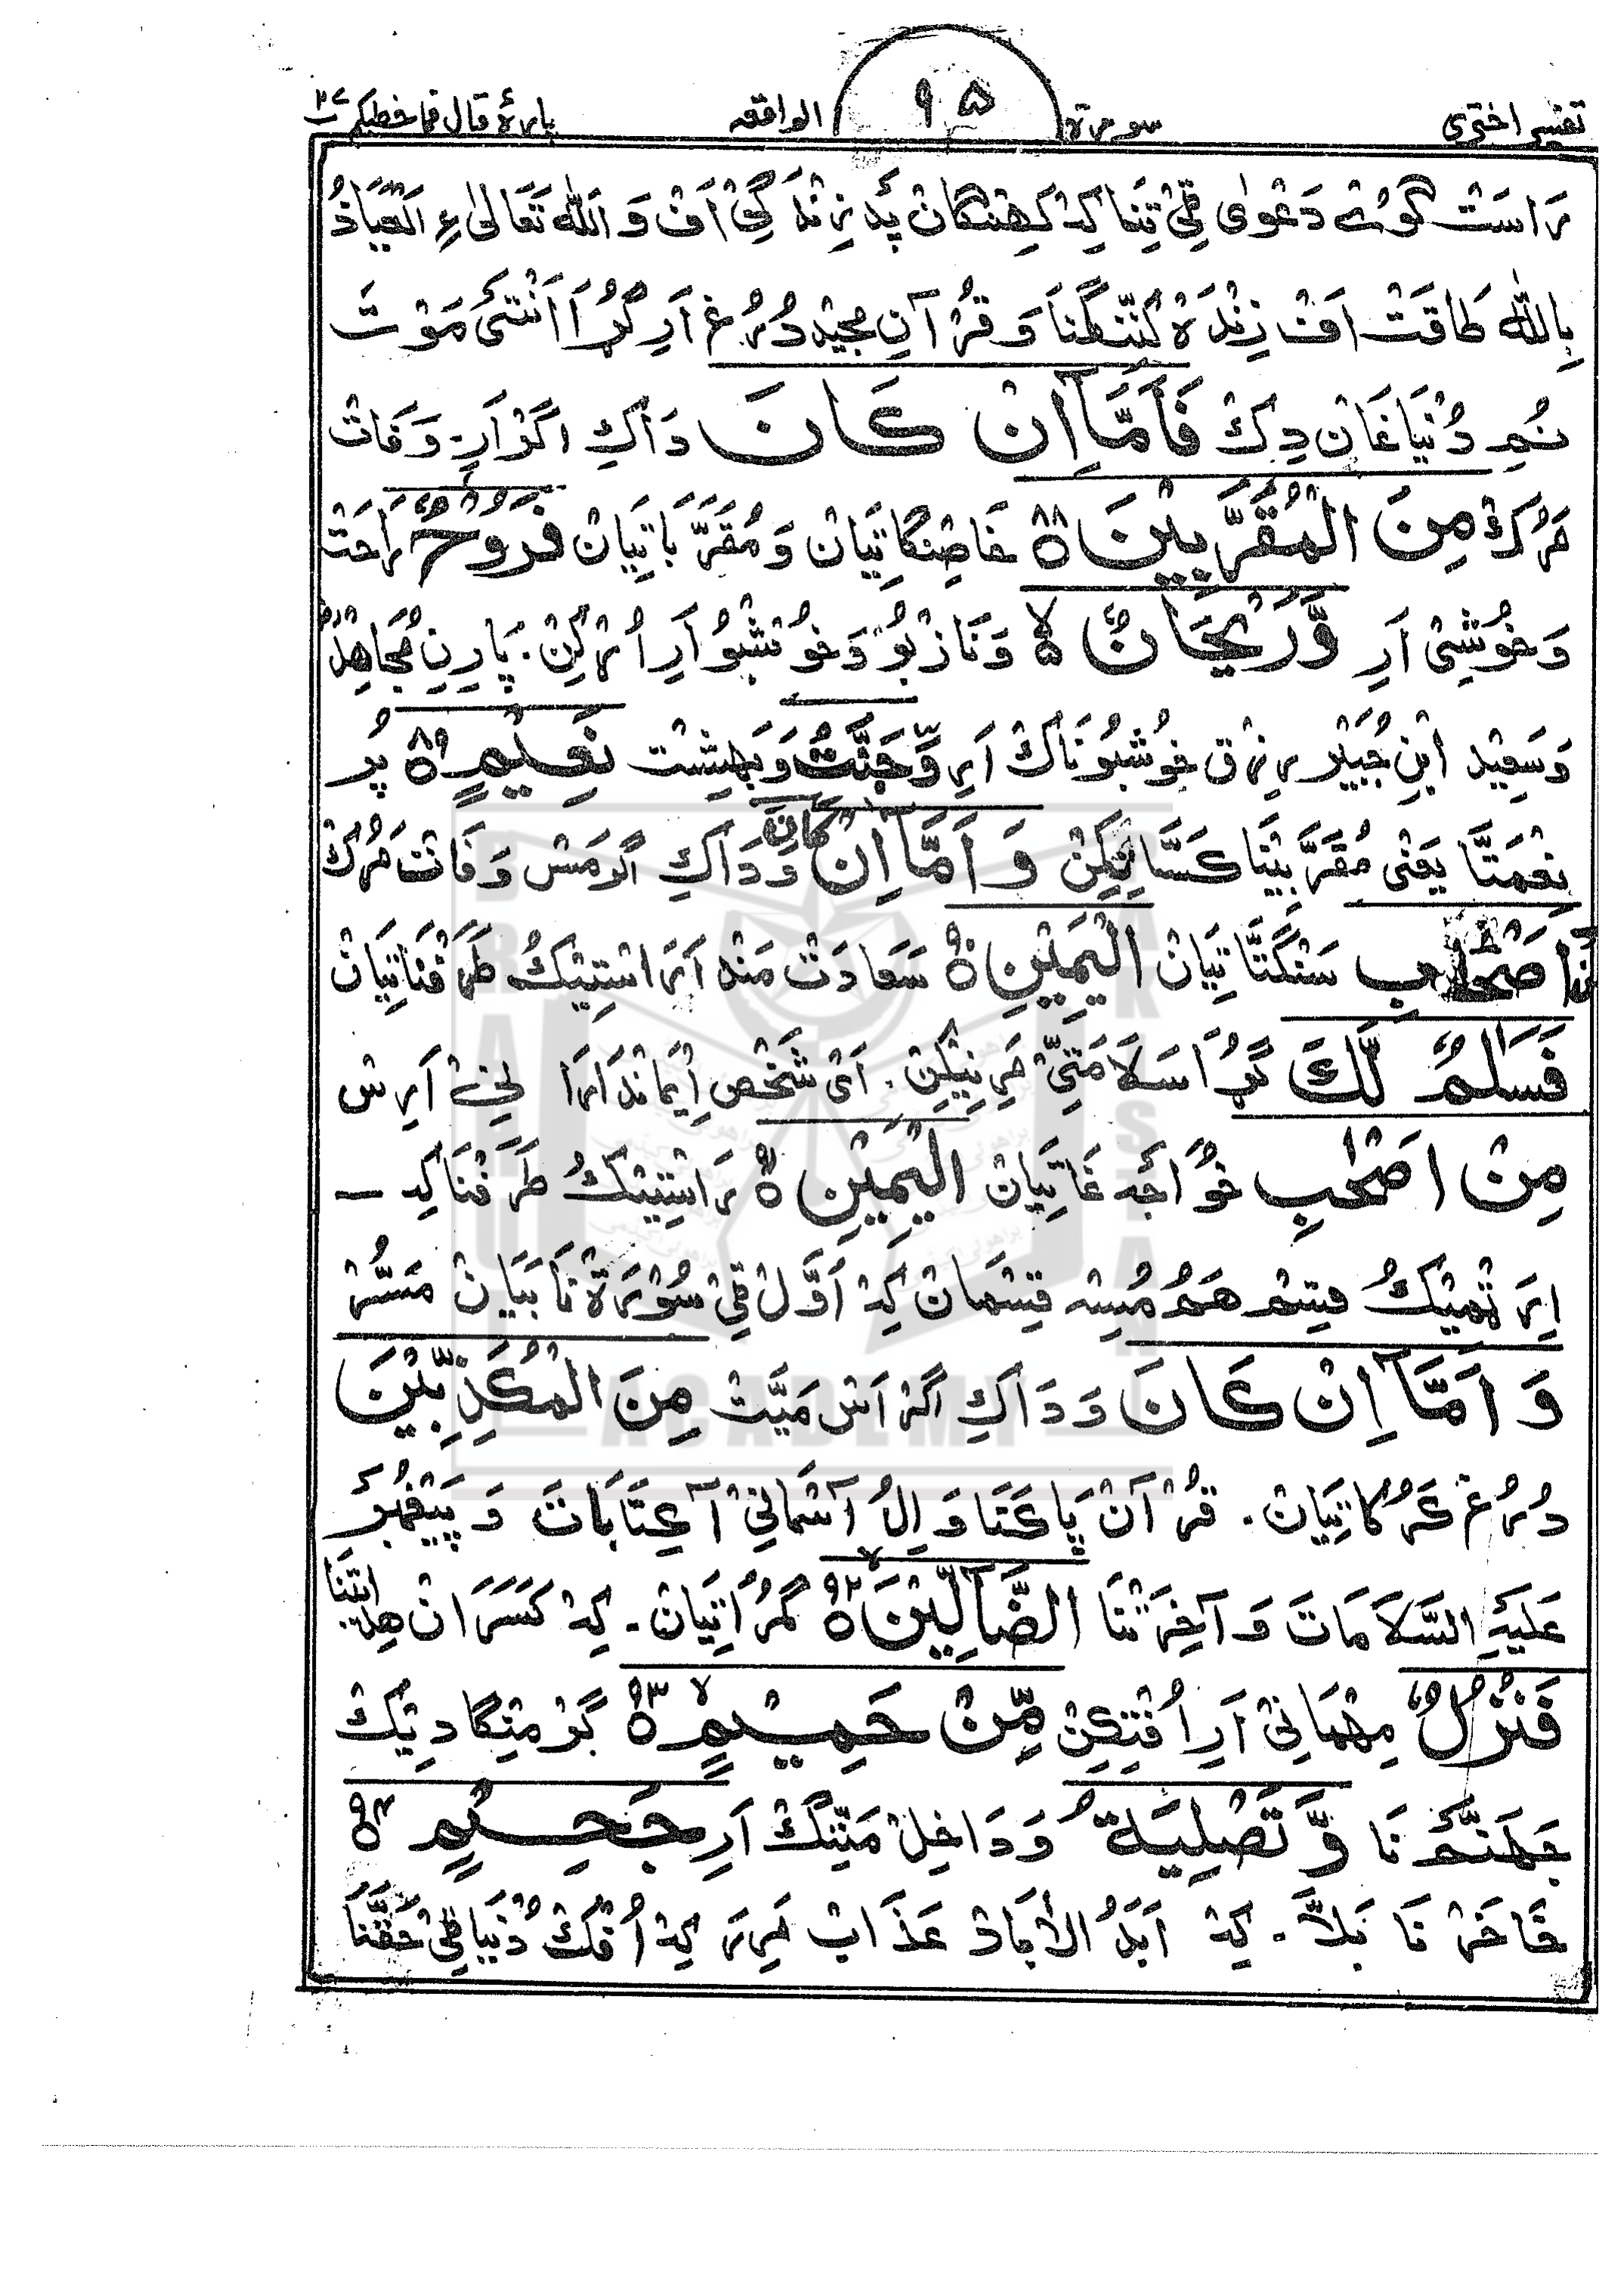 تفسیر اختری سورة ۹۵ الواقعه پارۂ قال فما خطبکم ۲۷
رَاسْت گوٗرے دَعْوٰی ٹِیْ تِنَا کِہْ کَہِنْگَانْ پَد زِنْدَ کَیِّ اَفْ وَ اَللّٰہ تَعَالٰی ءِ اَلْعَیَاذُ
بِاللّٰہ طَاقَتْ اَفْ زِنْدَہ کَنِّنْگنَا وَ قُرْآنِ مجِیْد دُرُغ اَرِ گُڑَا اَنْتَئَ مَوْت
نُمِ دُنْیَا غَانْ دِکْ فَاَمَّاۤ اِنْ كَانَ دَاکِ اَگَرْ اَرِ وَفَاتْ
مَرُکْ مِنَ الْمُقَرَّبِيْنَ ۸۸ خَاصِنْگَاتِیَانْ وَ مُقَرَّبَاتِیَانْ فَرَوْحٌ رَاحَتْ
وَخُوْشِیْ اَرِ وَّرَيْحَانٌ وَنَازْبُوْ وَخُوْشْبُو اَرِ اُڑْکِنْ. پَارِنِ مُجَاهِدْ
وَسَعِیْد اِبْنِ جُبَیْرْ رِزْق خُوْشْبُوْنَاکْ اَرِ وَّجَنَّتُ وَبِہِشْت نَعِيْمٍ ۸۹ پُر
نِعْمَتَّا یَعْنِی مُقَرَّبِیْنَا کَسَّا تِکِنْ وَ اَمَّاۤ اِنْ كَانَ وَدَاکِ اَگَرْمَسْ وَفَاتْ مَرُکْ
مِنْ اَصْحٰبِ سَنْگَتَّا تِیَانْ الْيَمِيْنِ ۹۰ سَعَادَتْ مَنْد اَرَ اسْتِیْکُ طَرَفْنَاتِیَانْ
فَسَلٰمٌ لَّكَ گُڑَا سَلَامَتِیْ مَرِ نِیْکِنْ. اَیْ شَخْص اِیْمَانْدَارَا اَرِس
مِنْ اَصْحٰبِ خُوَاجَہ غَاتِیَانْ الْيَمِيْنِ ۹۱ رَاسْتِیْکُ طَرَفْنَا کِہ —
اِرَ ٹمِیْکُ قِسْم هَمُ مُسِہ قِسْمَانْ کِہْ اَوَّلْ ٹِیْ سُوْرَةْ نَا بَیَانْ مَسُّرْ
وَ اَمَّاۤ اِنْ كَانَ وَدَاکِ اَگَرْ اَسْ مَیِّتْ مِنَ الْمُكَذِّبِيْنَ
دُرُغ کَرُکَاتِیَانْ. قُرْآنْ پَاکَنَا وَ اِلُ آسْمَانِیْ آ کِتَابَاتَ وَ پَیْغَمْبَرْ
عَلَیْہِ السَّلَامَاتَ وَ آخِرَتْنَا الضَّآلِّيْنَ ۹۲ گُمْرُاتِیَانْ. کِہْ کَسَرَانْ ھِدَایَتْنَا
فَنُزُلٌ مِہْمَانِیْ اَرِ اُفْتِکِنْ مِّنْ حَمِيْمٍ ۹۳ گَرْمِنْگَا دِیْکْ
جَہَنَّمْ نَا وَّ تَصْلِيَةُ وَ دَاخِلْ مَنِّنْگْ اَرِ جَحِيْمٍ ۹۴
خَاخَرْ نَا بَلَّا. کِہْ اَبَدُ الْاٰبَادْ عَذَابْ مَرِرَ کِہْ اُفْکْ دُنْیَا ٹِیْ حَقَّنَا